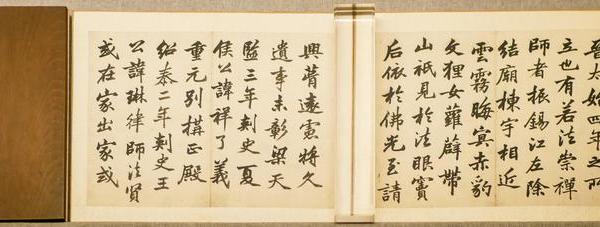 晉太始四年之所
立也有若法崇禪
師者振錫江左除
結廟棟宇相近
雲霧晦冥赤豹
文狸女蘿薜帶
山祇見於法眼竇
後依於佛光至請
興菁遠慮將久
遺事未彰梁天
監三年刺史夏
侯公諱祥了義
重元別構正殿
紹泰二年刺史王
公諱琳律師法賢
或在家出家或